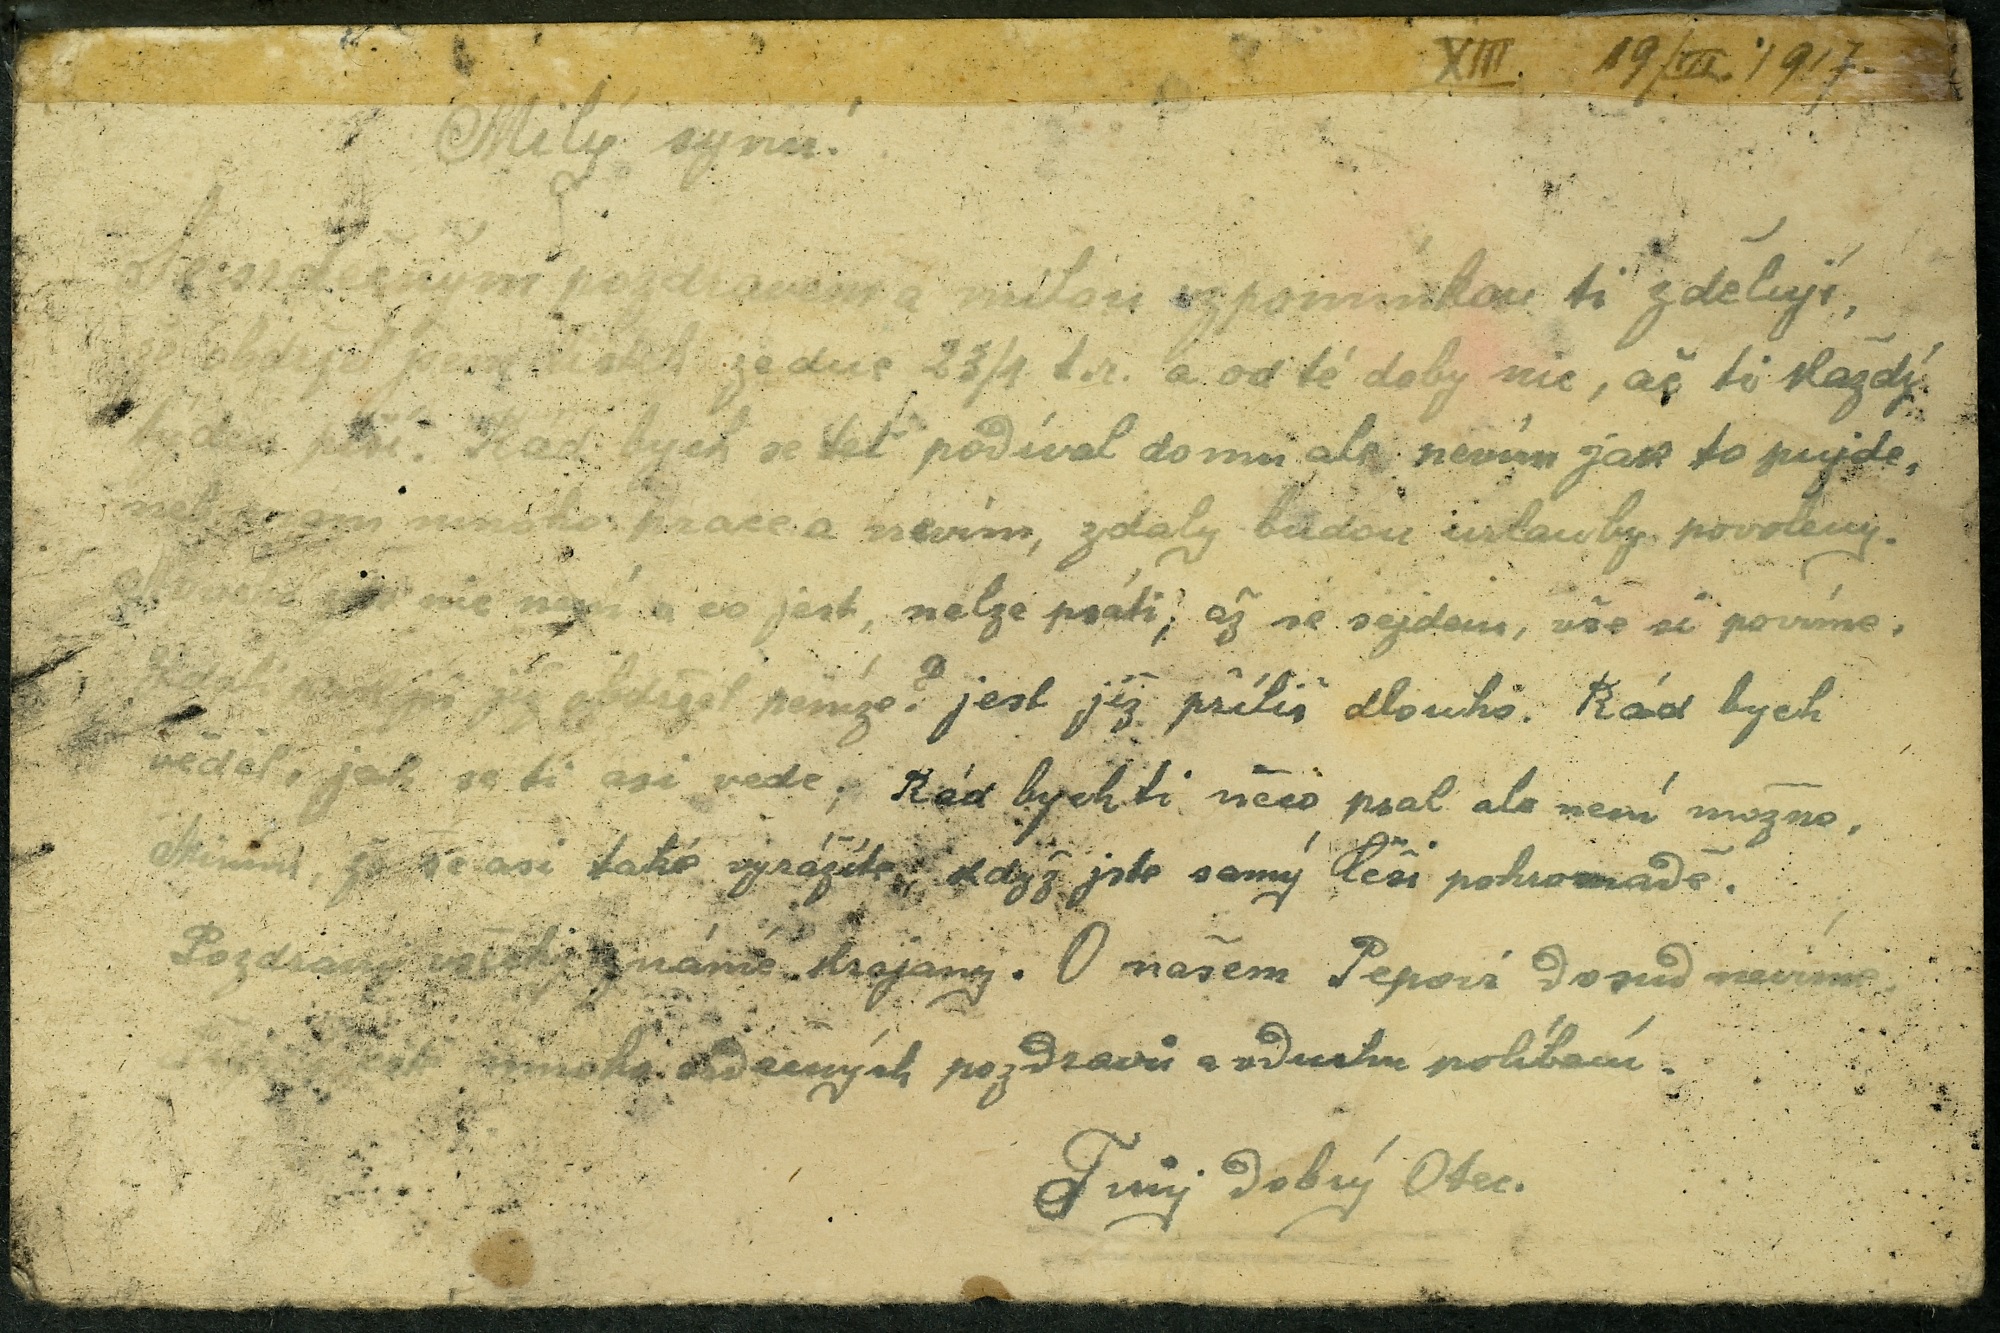 XIII. 19/VII. 1917.
Milý synu!
Se srdečným pozdravem a milou vzpomínkou ti zděluji,
že obdržel jsem lístek ze dne 23/4 t.r. a od té doby nic, ač ti každý
týden píši. Rád bych se teť poďíval domu ale nevím jak to pujde,
neb mam mnoho prace a nevím, zdaly budou urlauby povoleny.
nic není a co jest, nelze psáti, až se sejdem, vše si povíme.
Zdali jsi již obdržel peníze? jest již příliš dlouho. Rád bych
věděl, jak se ti asi vede, Rád bych ti něco psal ale není možno.
Mínim, že se asi také vyrážíte, když jste samý Češi pohromadě.
Pozdravuj všecky známé krajany. O našem Pepovi dosud nevíme.
mnoho srdečných pozdravů a vduchu políbení.
Tvuj dobrý Otec.